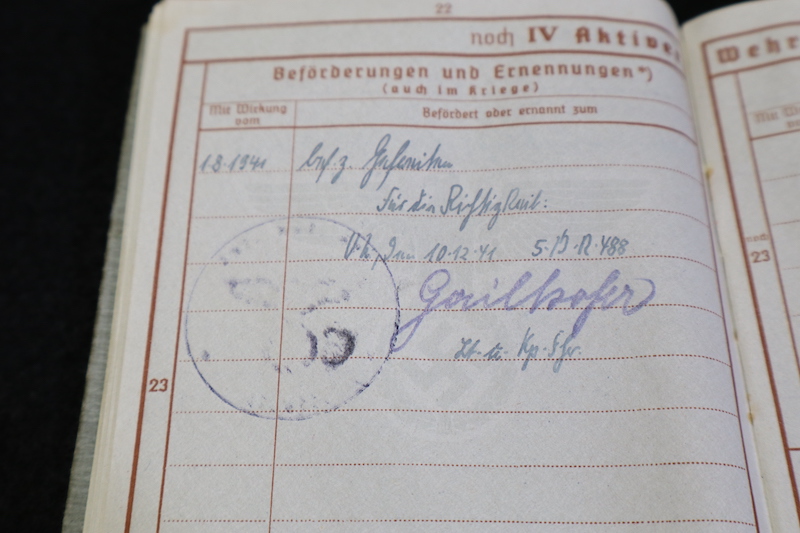 22
noch IV Aktiver
Beförderungen und Ernennungen*)
(auch im Kriege)
Mit Wirkung
vom
Befördert oder ernannt zum
1.8.1941 bef. z. Gefreiten
Für die Richtigkeit:
10.12.41 5.
488
Gailhofer
Lt. u. Kp. Fhr.
23
Wehr
noch
23